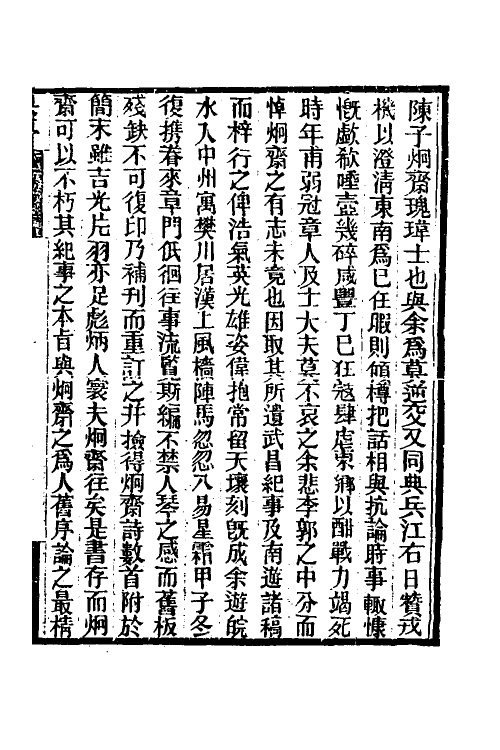 陳子炯齋瑰瑋士也與余爲莫逆交又同典兵江右日贊戎
機以澄清東南爲已任暇則傾樽把話相與抗論時事輙慷
慨歔欷唾壺幾碎咸豐丁巳狂寇肆虐東鄉以酣戰力竭死
時年甫弱冠章人及士大夫莫不哀之余悲李郭之中分而
悼炯齋之有志未竟也因取其所遺武昌紀事及南遊諸稿
而梓行之俾浩氣英光雄姿偉抱常留天壤刻旣成余遊皖
水入中州寓樊川居漢上風檣陣馬忽忽八易星霜甲子冬
復攜眷來章門低徊往事流覽斯編不禁人琴之感而舊板
殘缺不可復印乃補刊而重訂之并撿得炯齋詩數首附於
簡末雖吉光片羽亦足彪炳人寰夫炯齋往矣是書存而炯
齋可以不朽其紀事之本旨與炯齋之爲人舊序論之最精